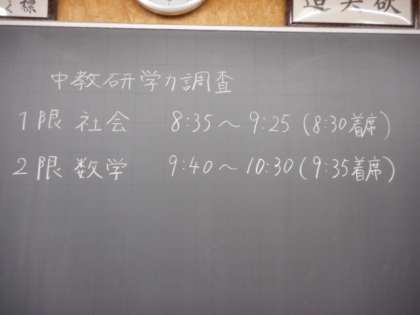 中教研学力調査
1限 社会 8:35～9:25 (8:30着席)
2限 数学 9:40～10:30(9:35着席)